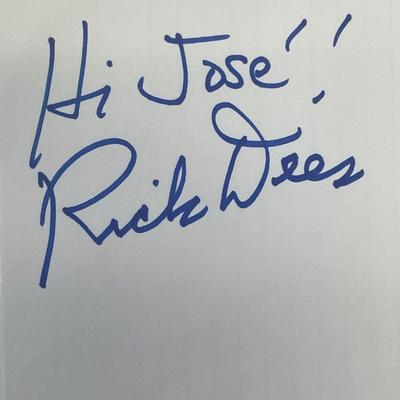 Hi José!!
Rick Dees